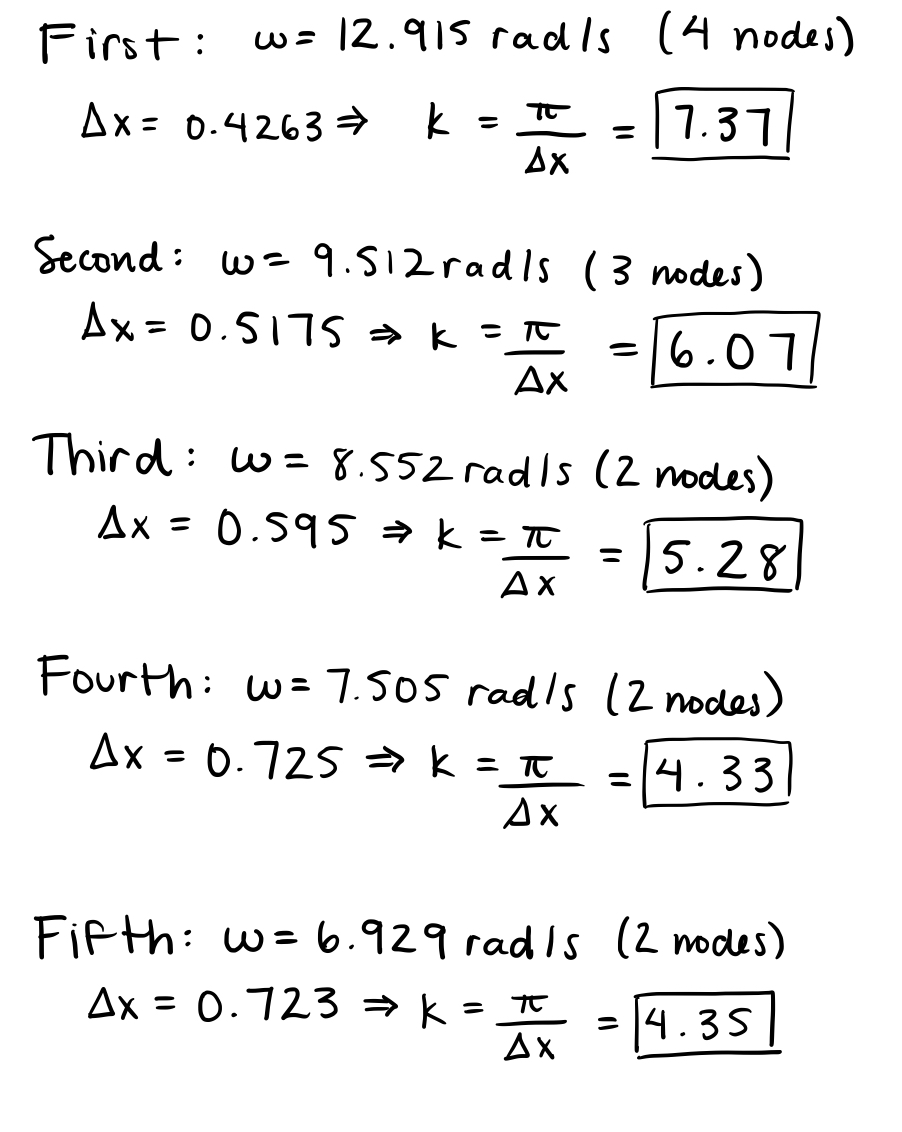 First: ω = 12.915 rad/s (4 nodes)
Δx = 0.4263 ⇒ k = π/Δx = 7.37
Second: ω = 9.512 rad/s (3 nodes)
Δx = 0.5175 ⇒ k = π/Δx = 6.07
Third: ω = 8.552 rad/s (2 nodes)
Δx = 0.595 ⇒ k = π/Δx = 5.28
Fourth: ω = 7.505 rad/s (2 nodes)
Δx = 0.725 ⇒ k = π/Δx = 4.33
Fifth: ω = 6.929 rad/s (2 nodes)
Δx = 0.723 ⇒ k = π/Δx = 4.35